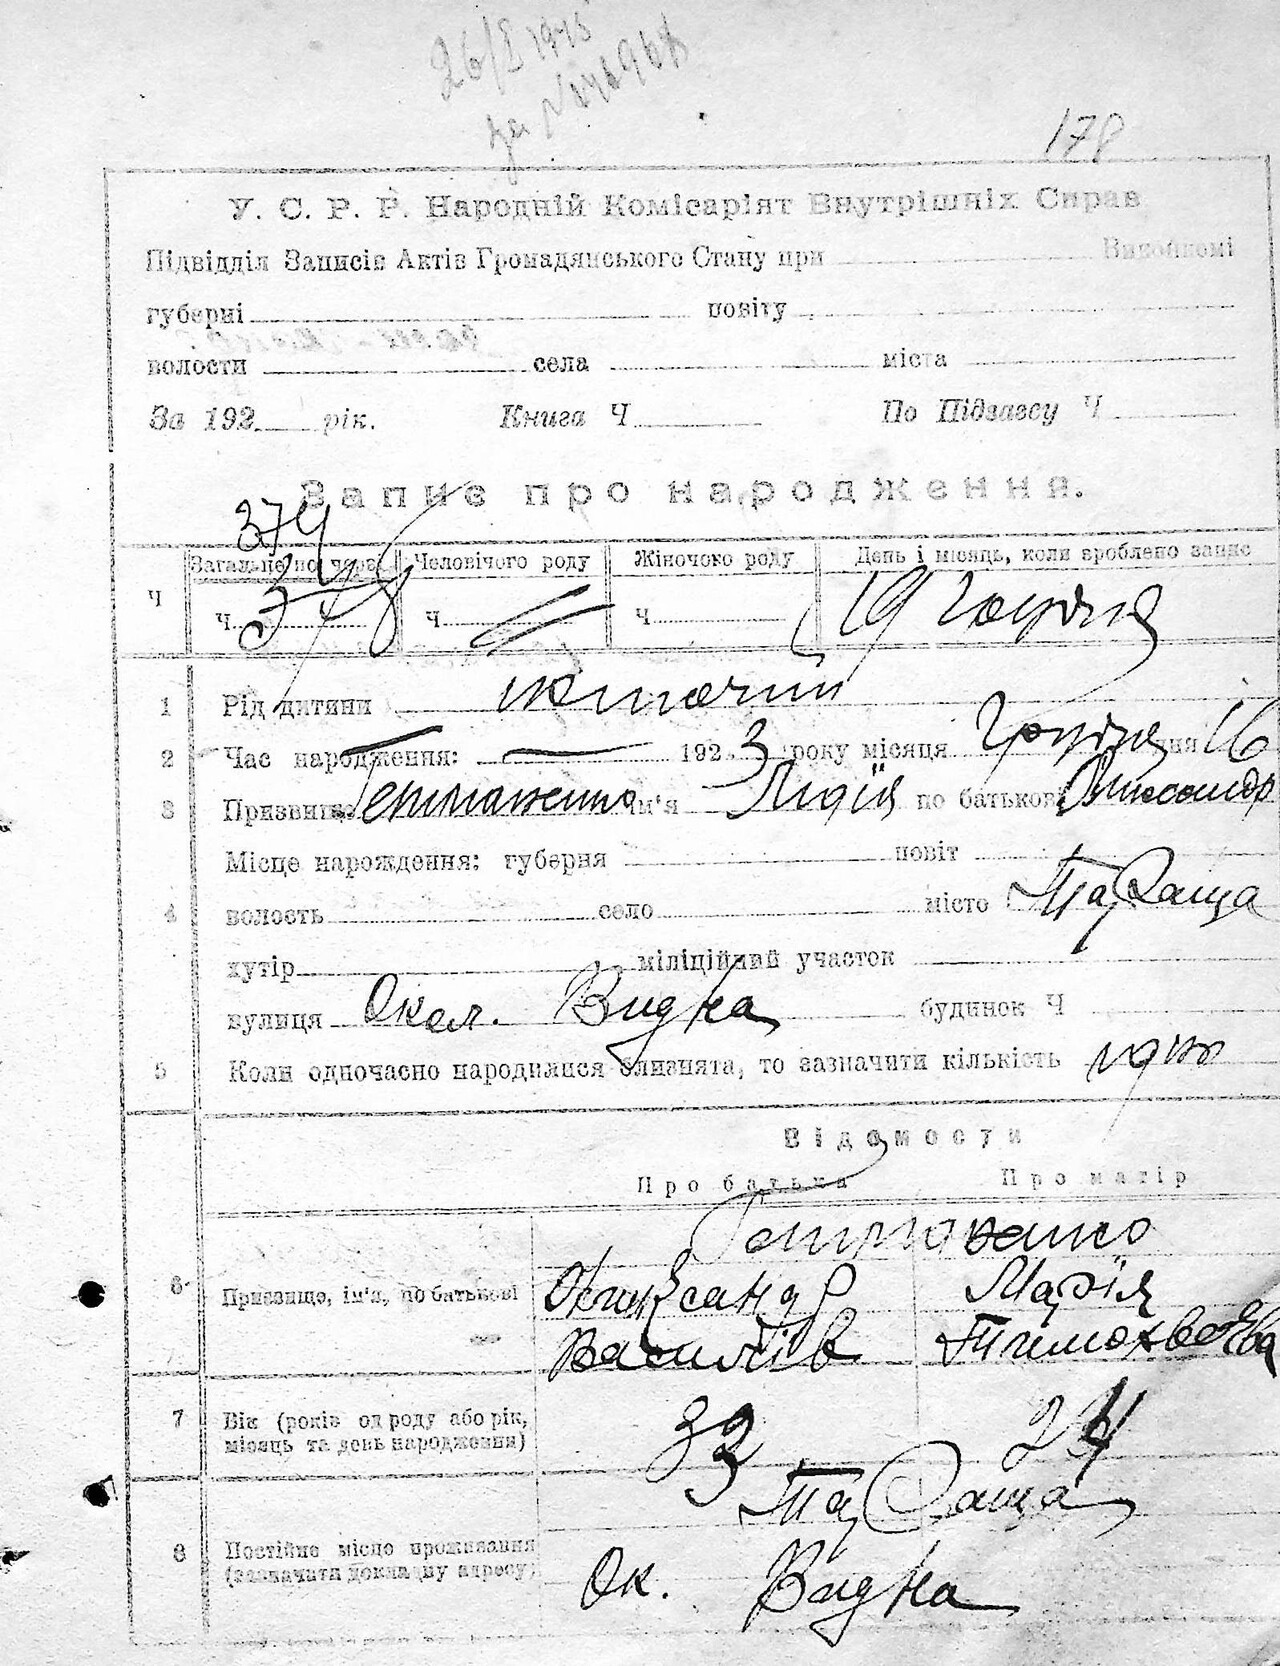 26/X 1945
за №
178
У. С. Р. Р. Народній Комісаріят Внутрішніх Справ
Підвідділ Записів Актів Громадянського Стану при Виконкомі
губерні повіту
волости села міста
За 192 рік. Книга Ч По Підзагсу Ч
Запис про народження.
374
Загальне по черзі Человічого роду Жіночого роду День і місяць, коли зроблено запис
Ч Ч. 378 Ч Ч 19 Грудня
1 Рід дитини жіночий
2 Час народження: 1923 року місяця Грудня дня 16
3 Призвище ім'я Лидія по батькові Олександр
Місце нарождення: губерня повіт
4 волость село місто Тараща
хутір міліційний участок
вулиця Окол. Видна будинок Ч
5 Коли одночасно народилися близнята, то зазначити кількість одно
Відомости
Про батька Про матір
6 Призвище, ім'я, по батькові Олександр Марія
Василів Тимохвеєва
7 Вік (років од роду або рік, 33 24
місяць та день народження)
Тараща
8 Постійне місце проживання
(зазначити докладну адресу) Ок. Видна